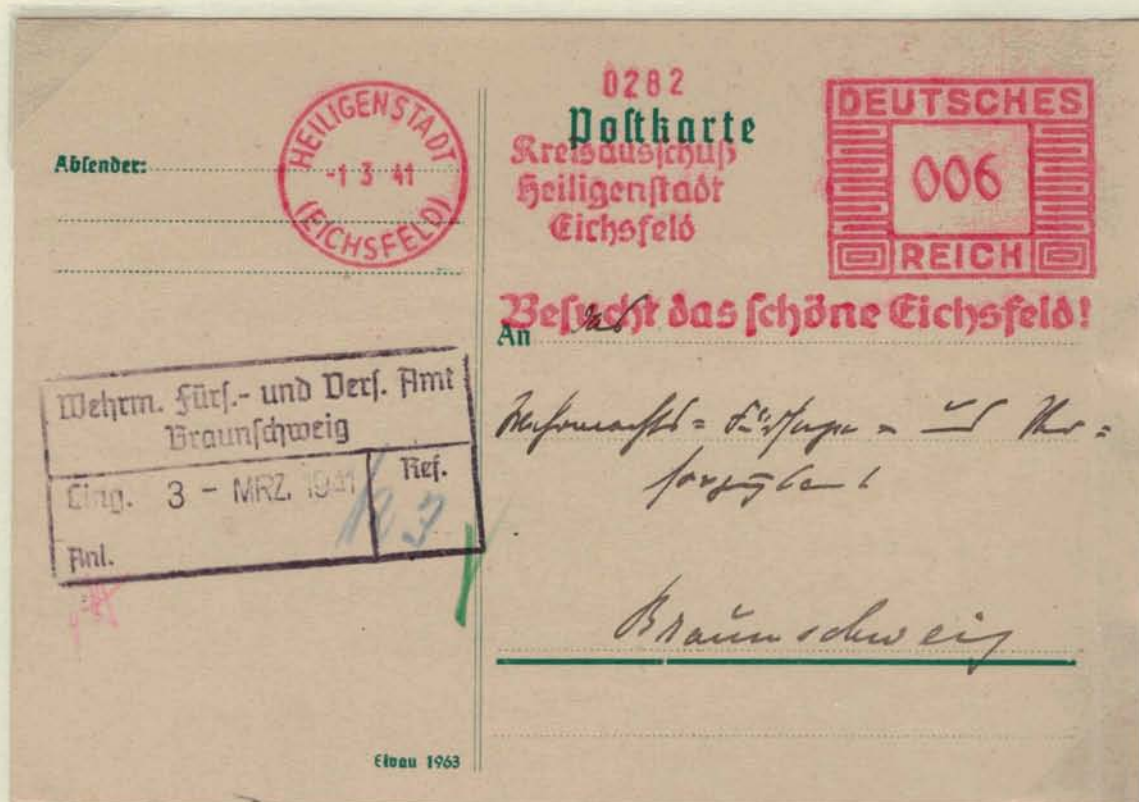 Absender:
HEILIGENSTADT
-1 3 41
(EICHSFELD)
0282
Postkarte
Kreisausschuß
Heiligenstadt
Eichsfeld
DEUTSCHES
006
REICH
Besucht das schöne Eichsfeld!
An das
Wehrmachts= Fürsorge = und Ver=
sorgungsamt
Braunschweig
Wehrm. Fürs.- und Vers. Amt
Braunschweig
Eing. 3 - MRZ. 1941
Ref.
Anl.
Elvau 1963